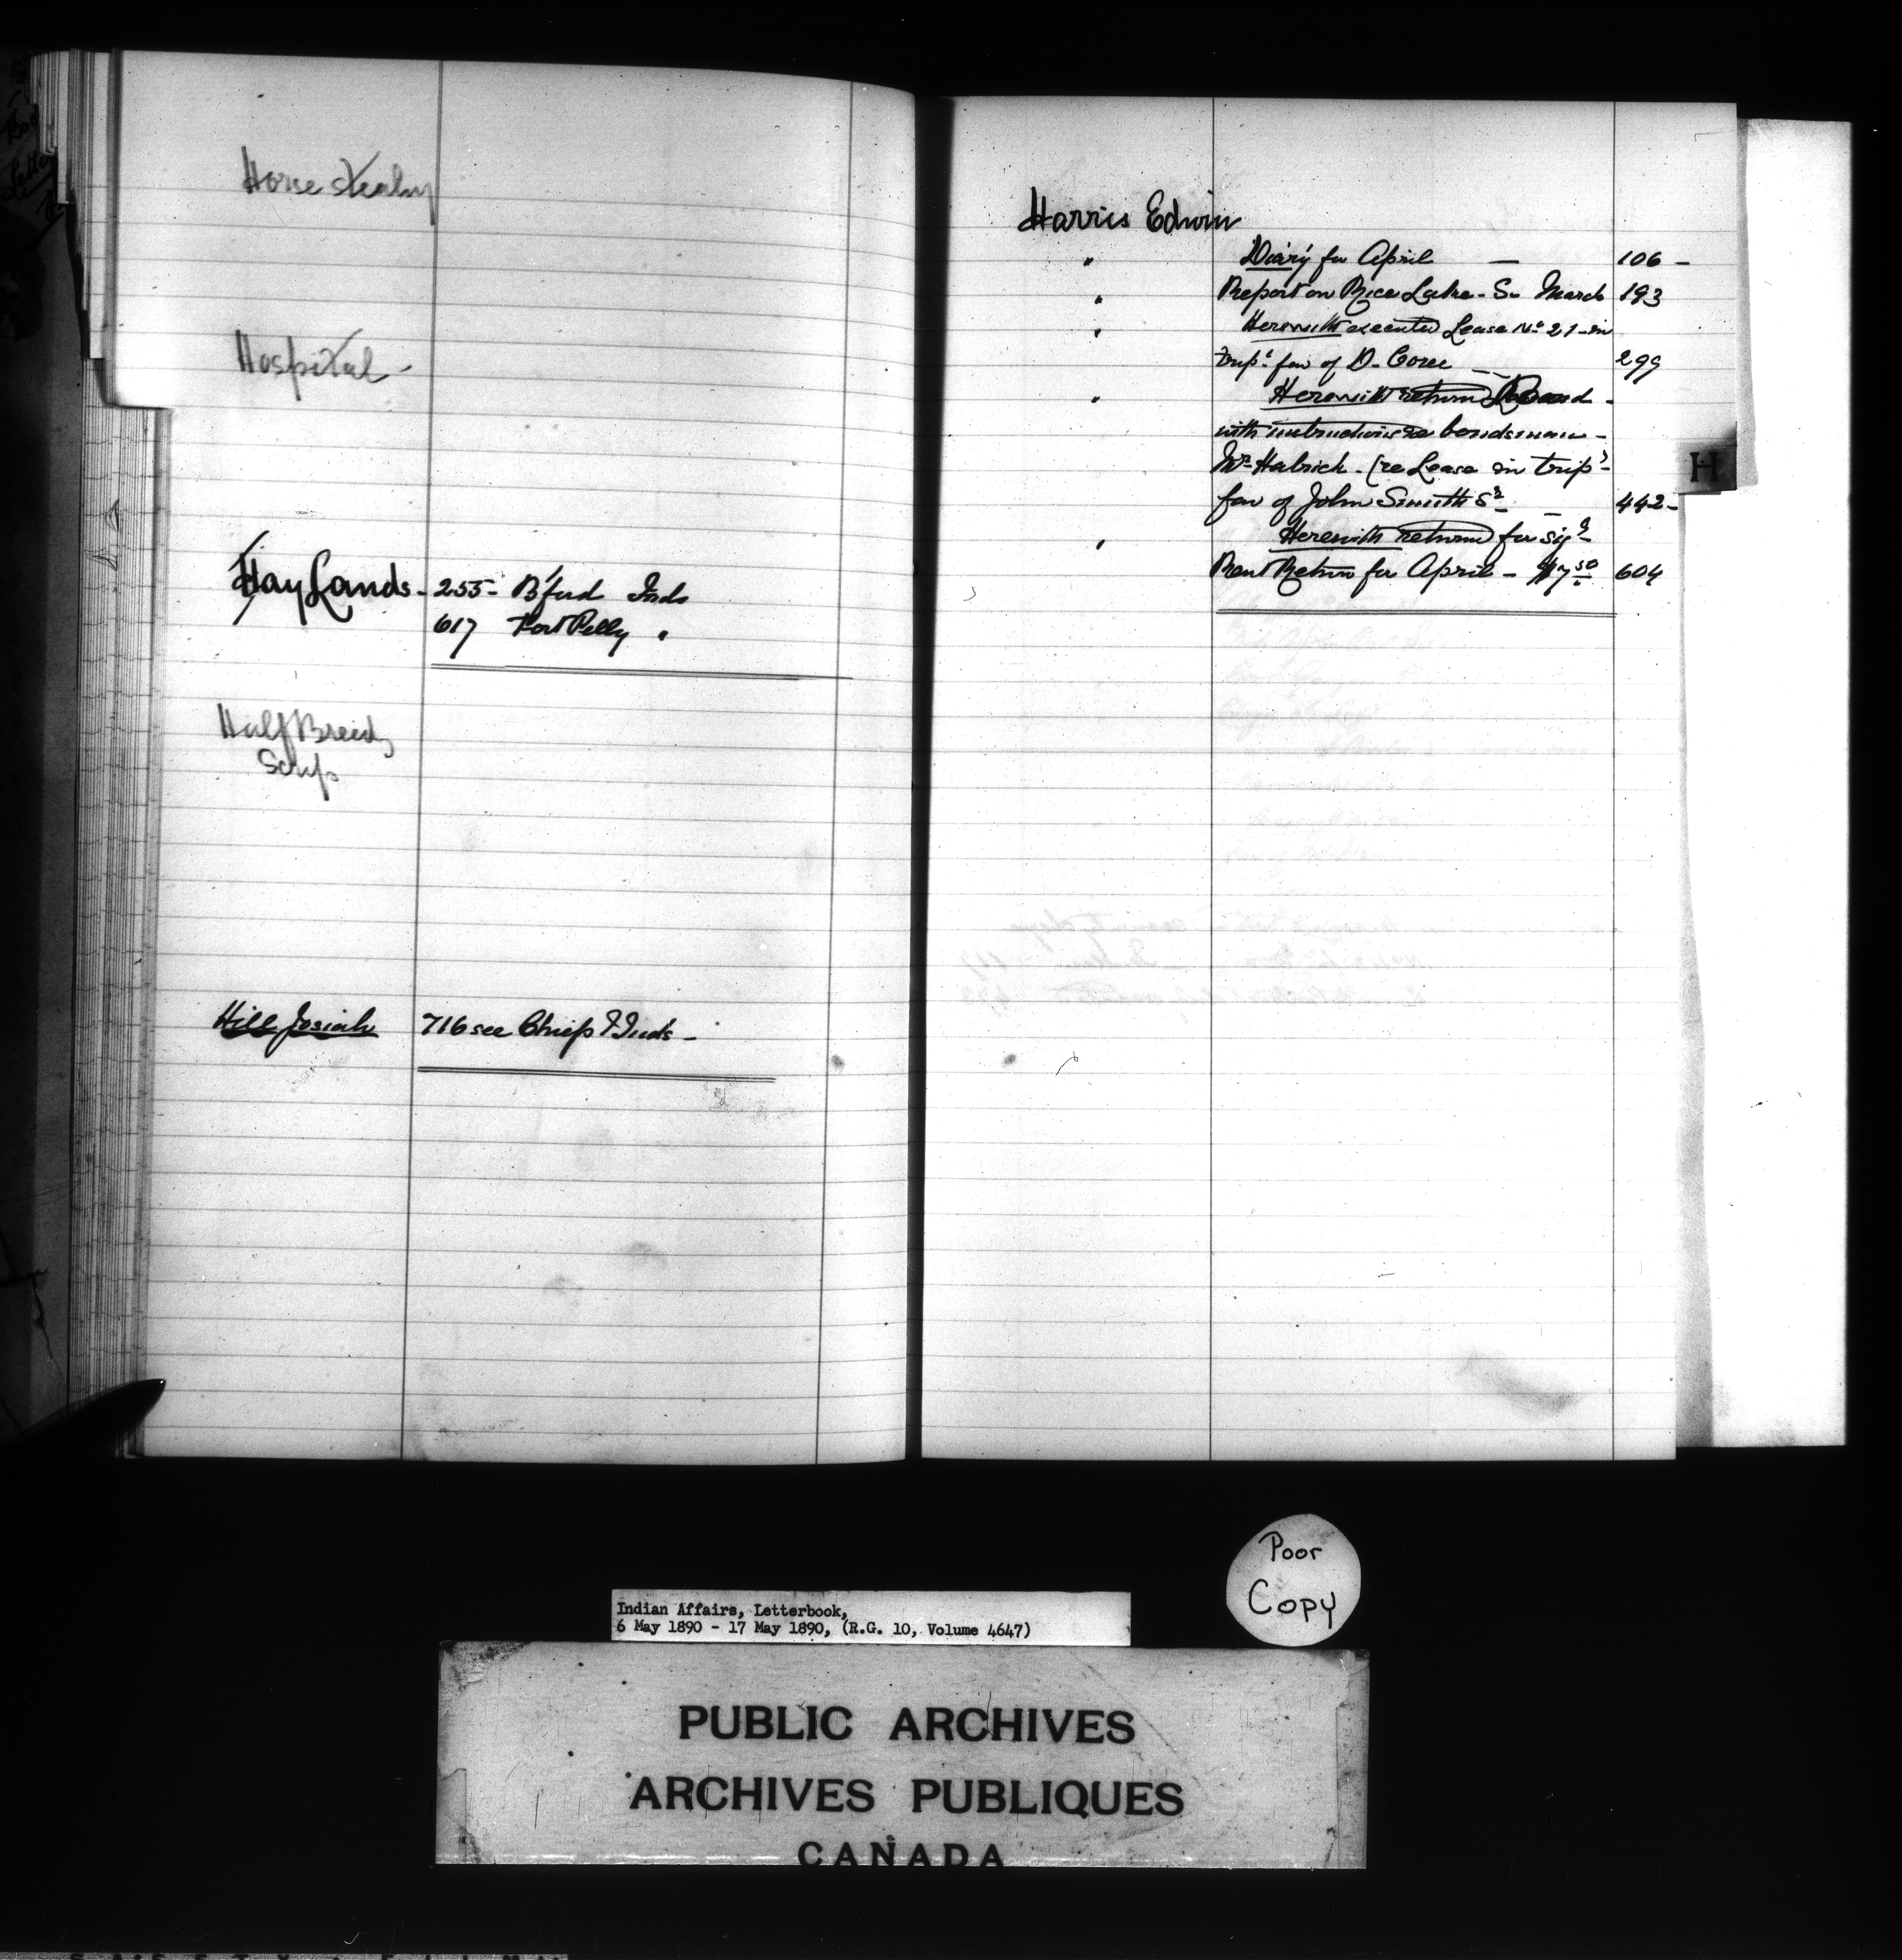 Horse Stealing
Hospital -
Hay Lands - 255 - B'ford Inds
617 Fort Pelly "
Half Breeds
Scrip
Hill Josiah 716 see Chiefs & Inds -
Harris Edwin
" Diary for April — 106 -
" Report on Rice Lake - S. March 193
" Herewith executed Lease No 21 - in
trip. fav of D. 299
" Herewith return
with instructions re bondsman -
Mr (re Lease in trip. -
fav of John Smith Sr - 442 -
" Herewith returned for sigr -
Rent Return for April - $17 50 604
H
Poor
Copy
Indian Affairs, Letterbook,
6 May 1890 - 17 May 1890, (R.G. 10, Volume 4647)
PUBLIC ARCHIVES
ARCHIVES PUBLIQUES
CANADA